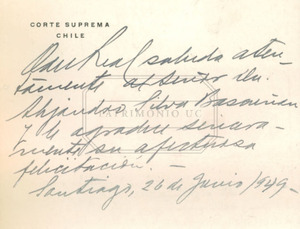 CORTE SUPREMA
CHILE
Real saluda aten-
tamente al Señor Dn.
Alejandro Silva Bascuñan
y le agradece sincera-
mente su afectuosa
felicitación. —
Santiago, 26 de Junio/949-
PATRIMONIO UC